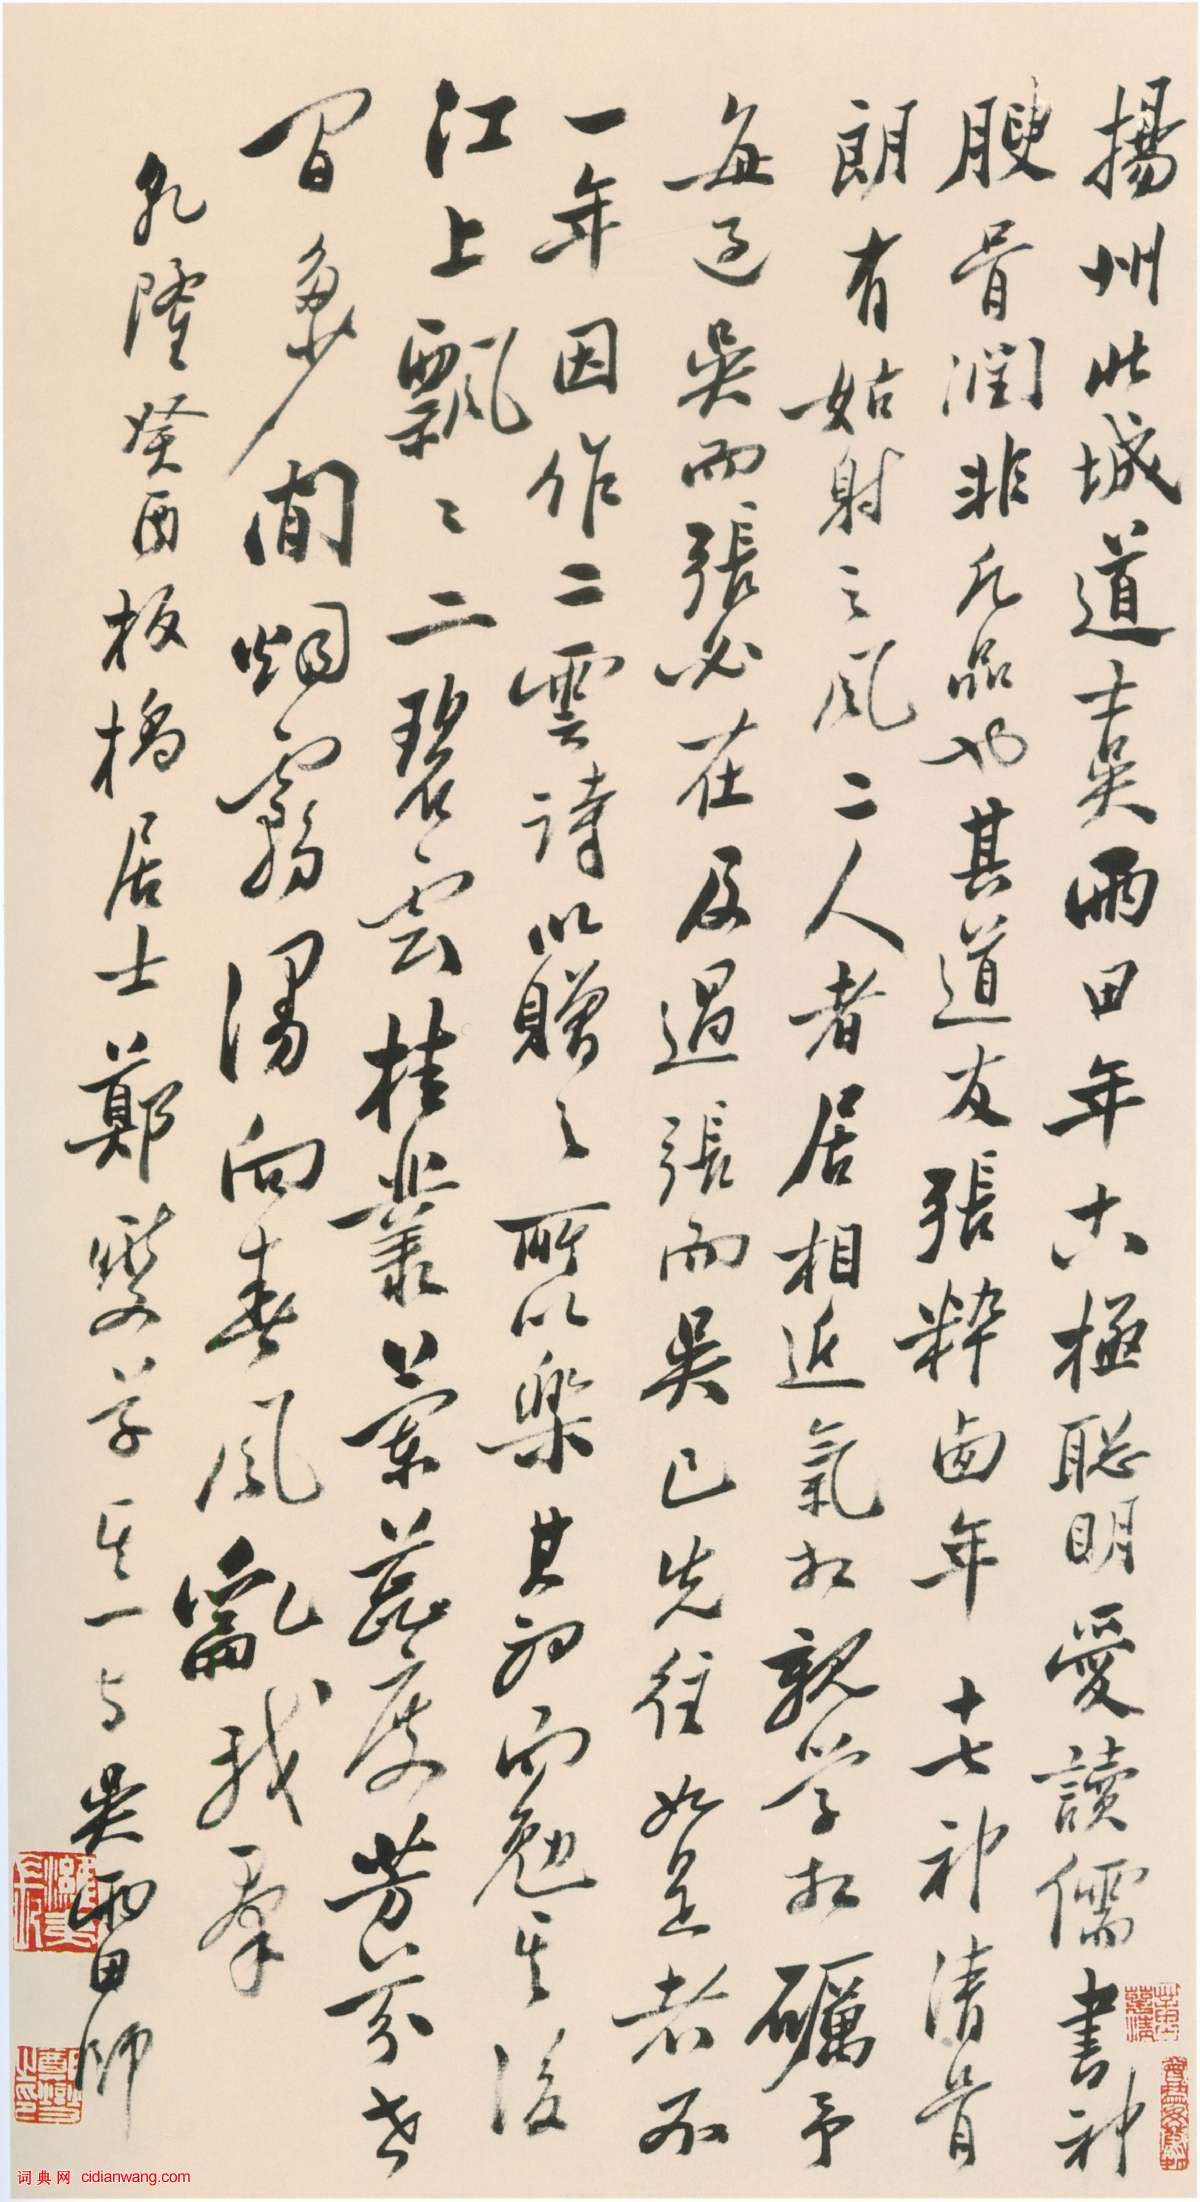 揚州此城道士吳雨田年十六極聰明愛讀儒書神
腴骨潤非凡品也其道友張粹西年十七神清骨
朗有姑射之風二人者居相近氣相親學相礪予
每過吳而張必在及過張而吳已先往如是者不
一年因作二雲詩以贈之所以樂其初而勉其後
江上飄〻二碧雲桂叢蘭蕊度芳芬世
間多少閒烟靄漫向春風亂我群
乾隆癸酉板橋居士鄭燮草其一与吳雨田師
鄭燮之印
词典网 cidianwang.com